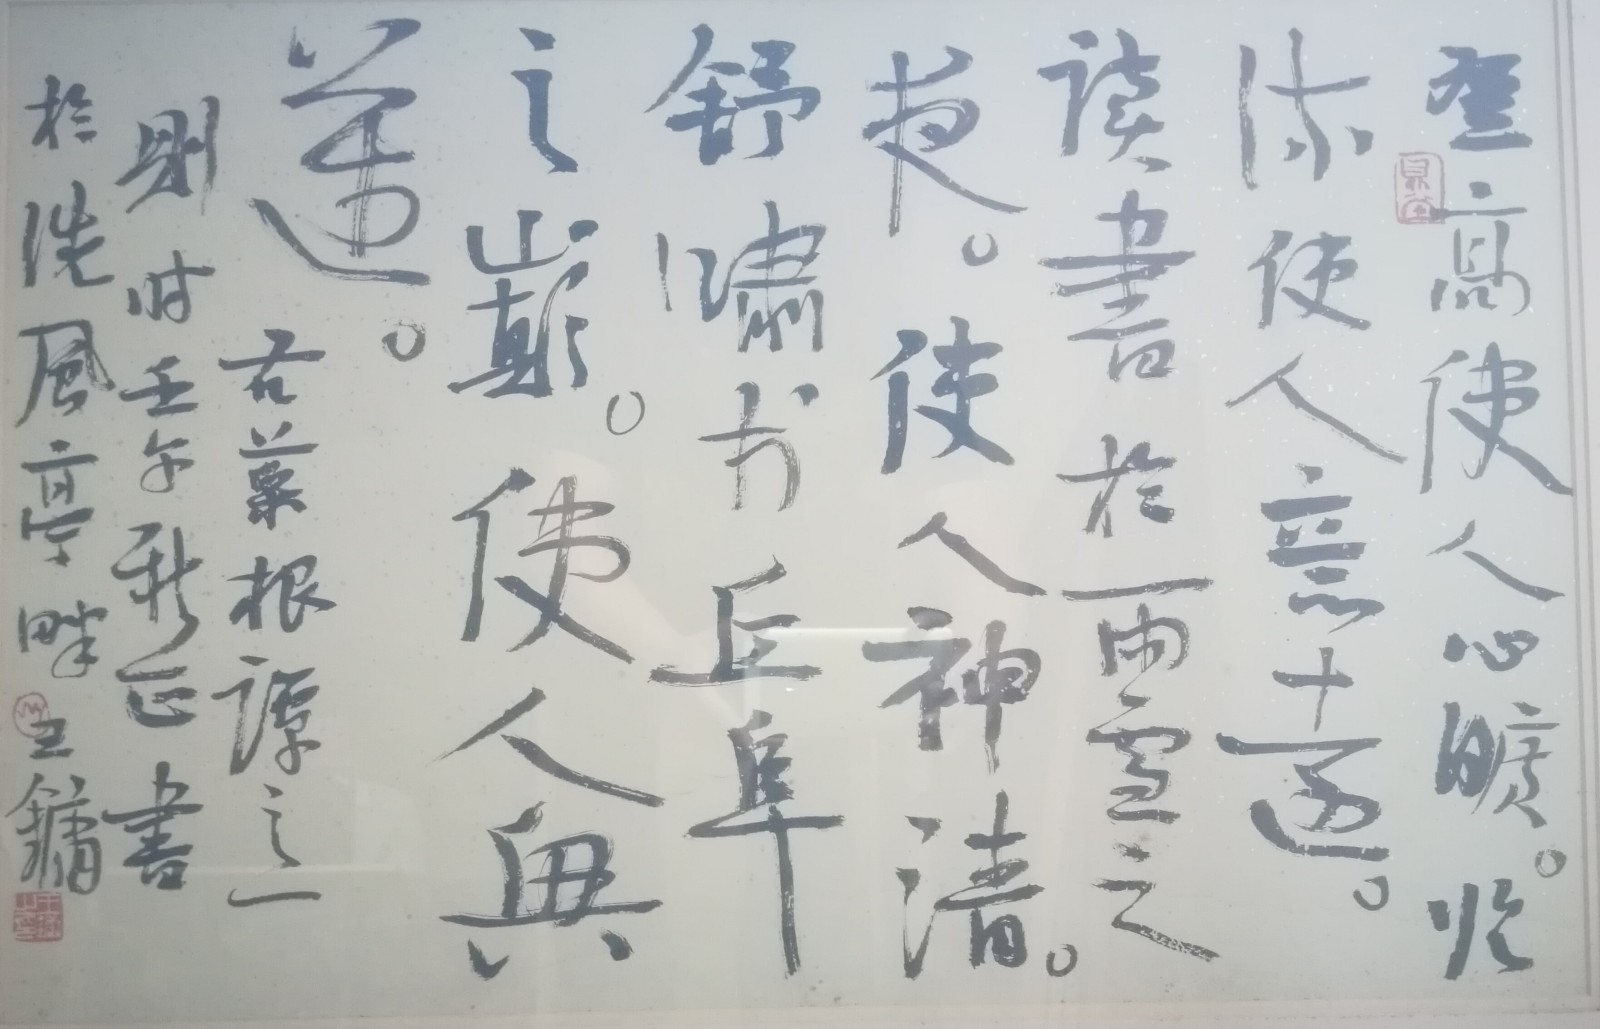 登高使人心曠。临
流使人意遠。
读書於雨雪之
夜。使人神清。
舒嘯於丘阜
之巔。使人興
邁。
右菜根譚之一
則时壬午新正書
於洗風亭畔王鏞